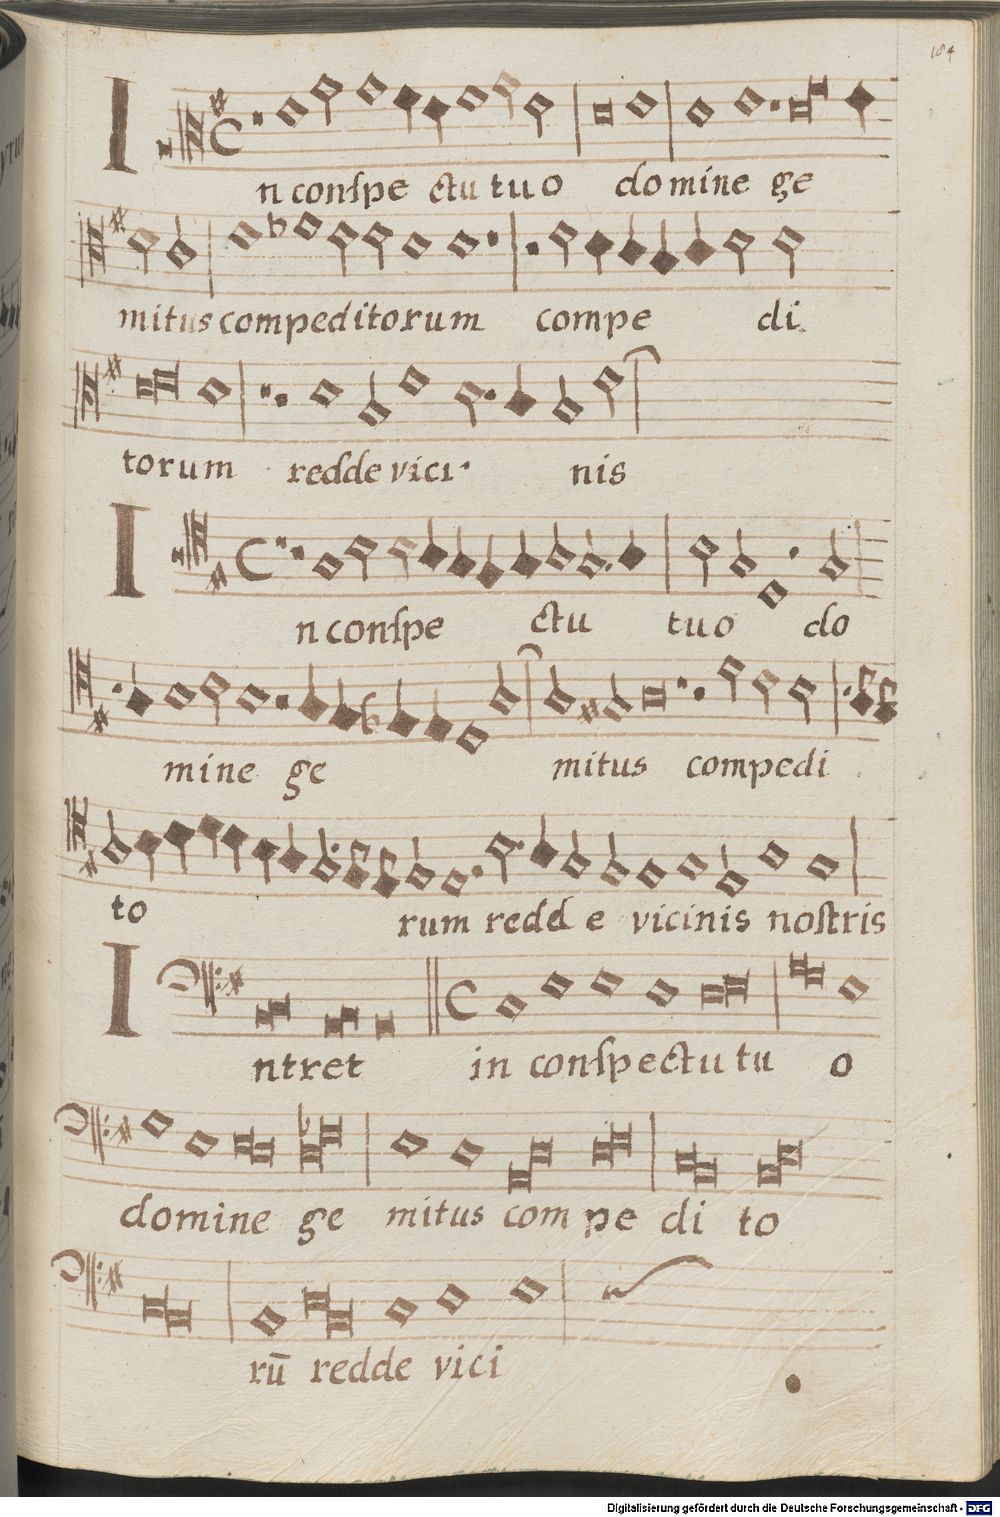 184
I
n conspe ctu tuo domine ge
mitus compeditorum compe di
torum redde vici nis
I
n conspe ctu tuo do
mine ge mitus compedi
to rum redd e vicinis nostris
I
ntret in conspectu tu o
domine ge mitus com pe di to
rū redde vici
Digitalisierung gefördert durch die Deutsche Forschungsgemeinschaft - DFG